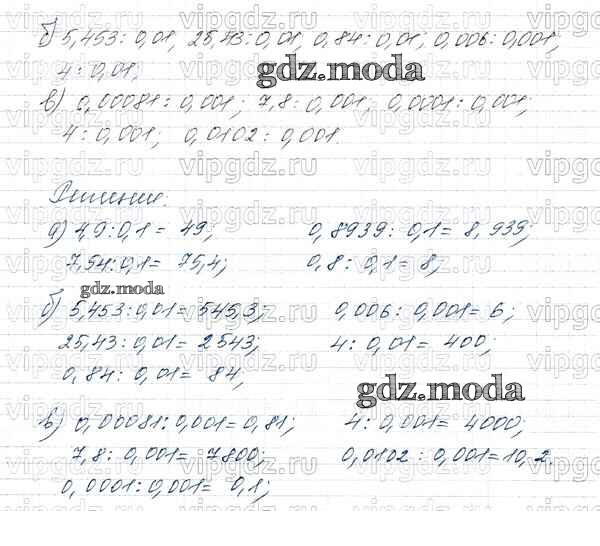 б) 5,453 : 0,01; 25,43 : 0,01; 0,84 : 0,01; 0,006 : 0,001;
4 : 0,01;
gdz.moda
в) 0,00081 : 0,001; 7,8 : 0,001; 0,0001 : 0,001;
4 : 0,001; 0,0102 : 0,001.
Решение:
а) 4,9 : 0,1 = 49; 0,8939 : 0,1 = 8,939;
7,54 : 0,1 = 75,4; 0,8 : 0,1 = 8;
gdz.moda
б) 5,453 : 0,01 = 545,3; 0,006 : 0,001 = 6;
25,43 : 0,01 = 2543; 4 : 0,01 = 400;
0,84 : 0,01 = 84;
gdz.moda
в) 0,00081 : 0,001 = 0,81; 4 : 0,001 = 4000;
7,8 : 0,001 = 7800; 0,0102 : 0,001 = 10,2.
0,0001 : 0,001 = 0,1;
vipgdz.ru